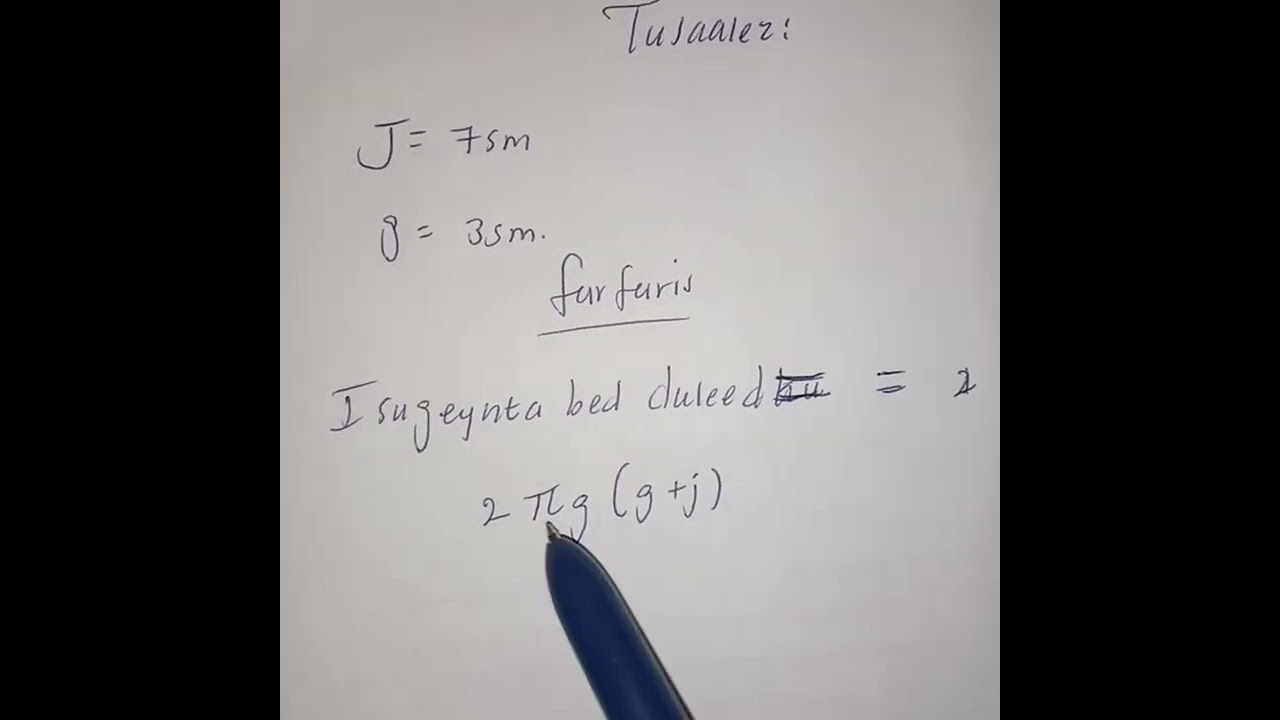 Tusaaler:
J= 7sm
g = 3sm.
furfuris
Isugeynta bed duleed = 2
2 πg (g+j)